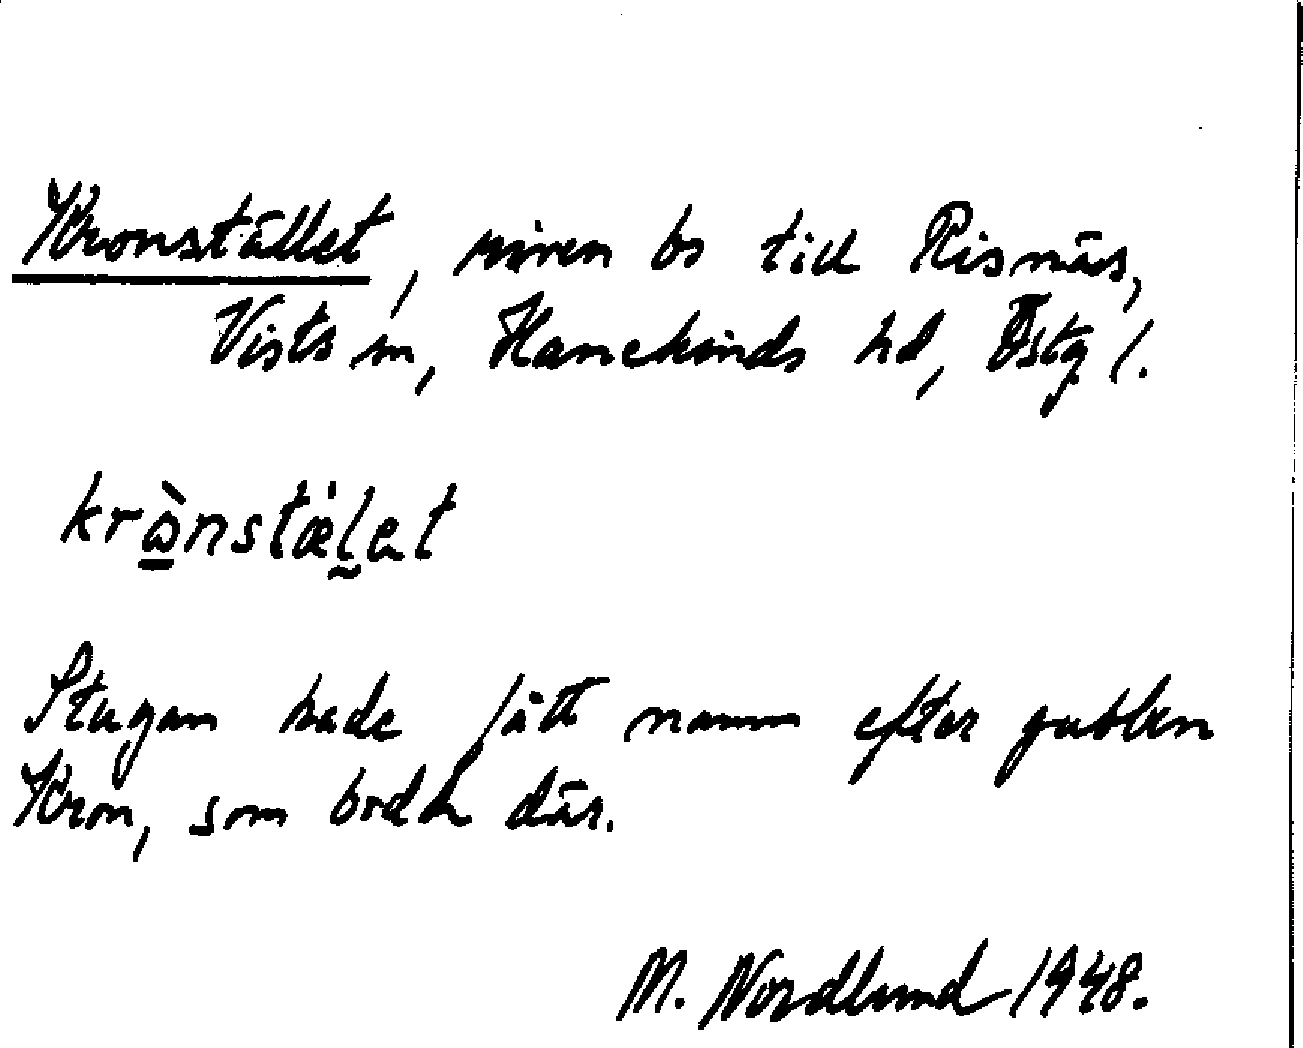 Kronstället, riven bs till Risnäs,
Vists sn, Hanekinds hd, Östg l.
krὼnstæ̀l̰et
Stugan hade fått namn efter gubben
Kron, som bodde där.
M. Nordlund 1948.